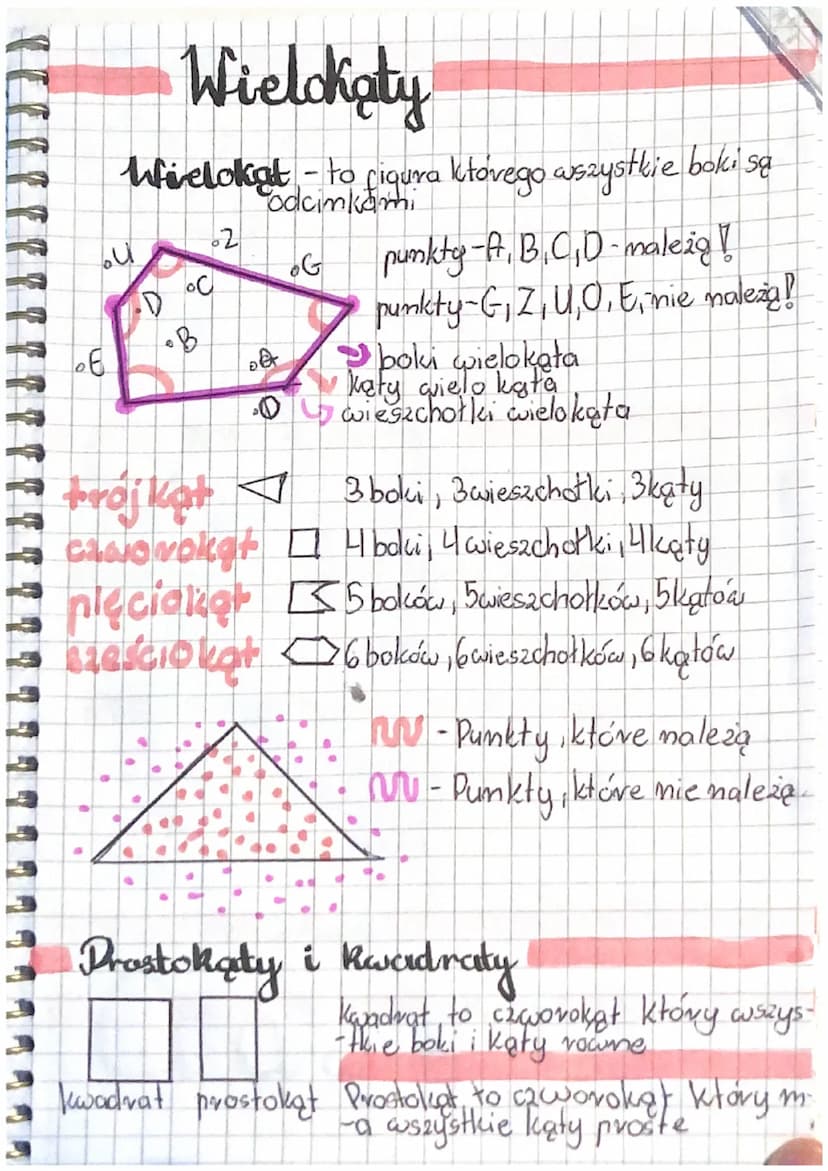 Wielokąty
Wielokąt - to figura którego wszystkie boki są
odcinkami
.U
.Z
.G
.D
.C
.B
.E
.A
.O
punkty - A, B, C, D - należą!
punkty - G, Z, U, O, E, - nie należą!
boki wielokąta
kąty wielokąta
wieszchołki wielokąta
trójkąt 3 boki, 3 wieszchołki, 3 kąty
czworokąt 4 boki, 4 wieszchołki, 4 kąty
pięciokąt 5 boków, 5 wieszchołków, 5 kątów
sześciokąt 6 boków, 6 wieszchołków, 6 kątów
- Punkty, które należą
- Punkty, które nie należą
Prostokąty i kwadraty
Kwadrat to czworokąt który wszys-
-tkie boki i kąty równe
kwadrat prostokąt
Prostokąt to czworokąt który m-
-a wszystkie kąty proste